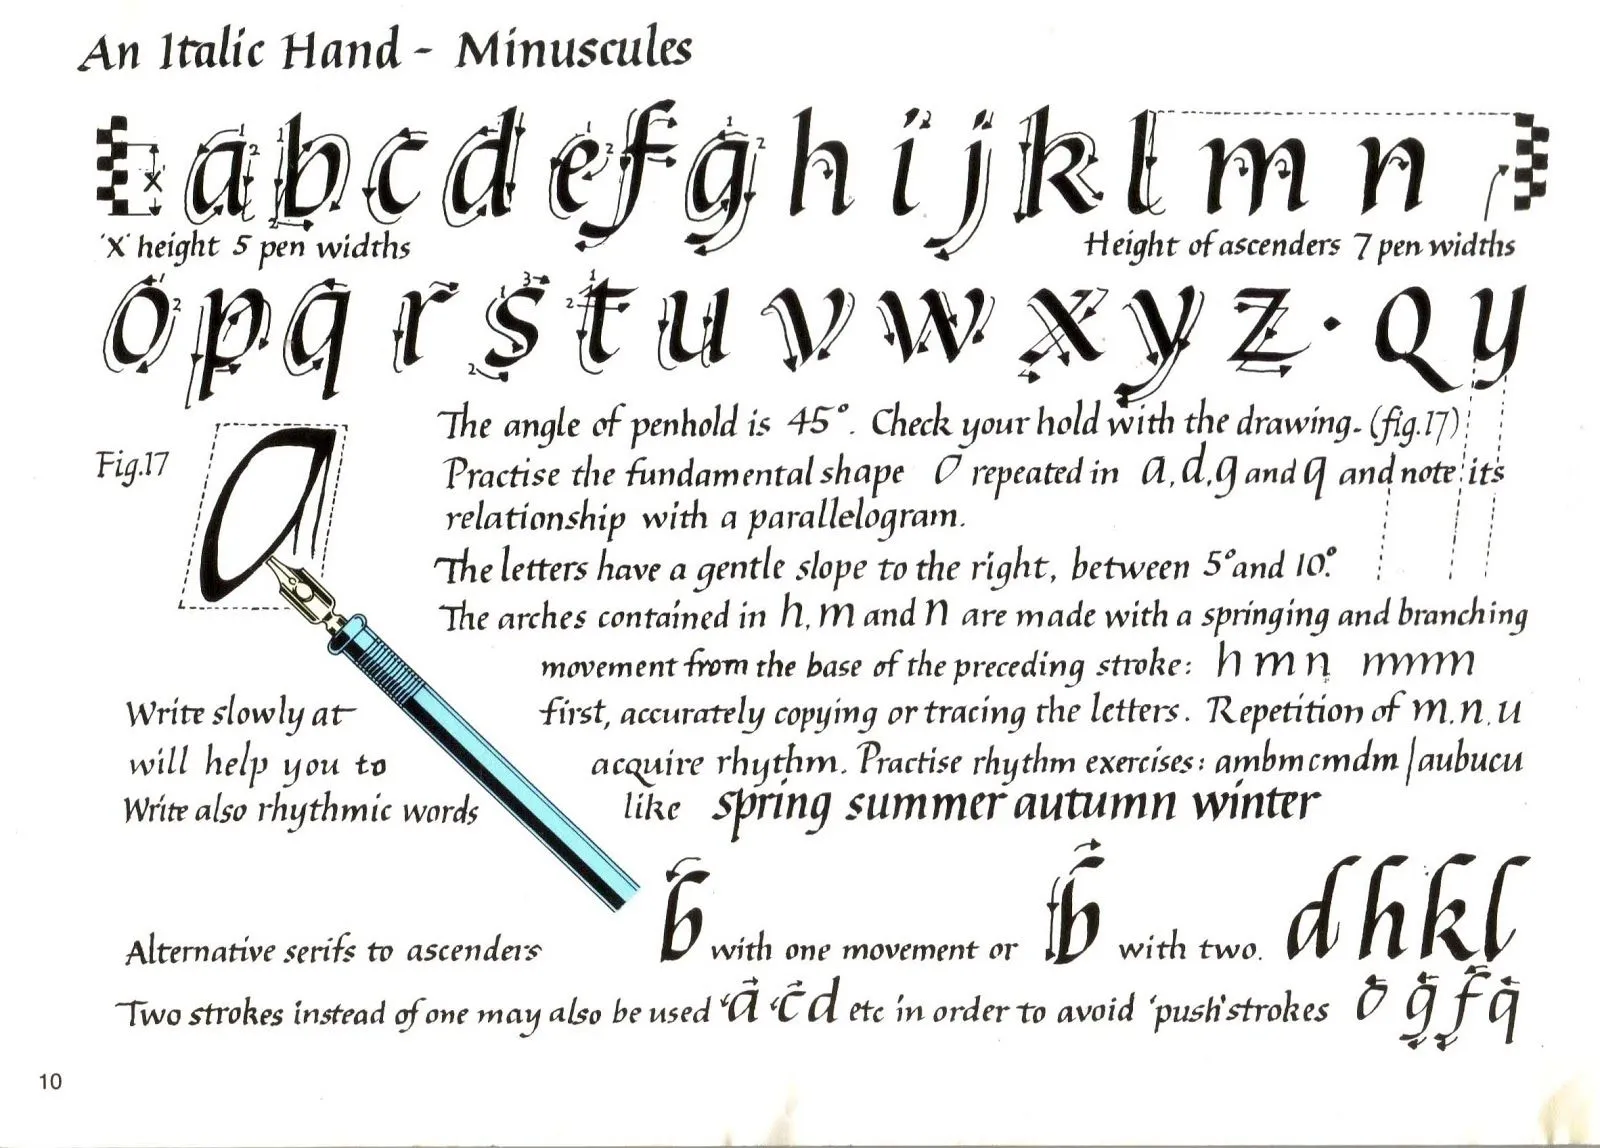 An Italic Hand - Minuscules
a b c d e f g h i j k l m n
'X' height 5 pen widths
Height of ascenders 7 pen widths
o p q r s t u v w x y z · Q y
Fig.17
The angle of penhold is 45°. Check your hold with the drawing. (fig.17)
Practise the fundamental shape O repeated in a, d, g and q and note its
relationship with a parallelogram.
The letters have a gentle slope to the right, between 5° and 10°.
The arches contained in h, m and n are made with a springing and branching
movement from the base of the preceding stroke: h m n mmm
Write slowly at first, accurately copying or tracing the letters. Repetition of m. n. u
will help you to acquire rhythm. Practise rhythm exercises: ambmcmdm / aubucu
Write also rhythmic words like spring summer autumn winter
Alternative serifs to ascenders b with one movement or b with two. d h k l
Two strokes instead of one may also be used a c d etc in order to avoid 'push' strokes o g f q
10